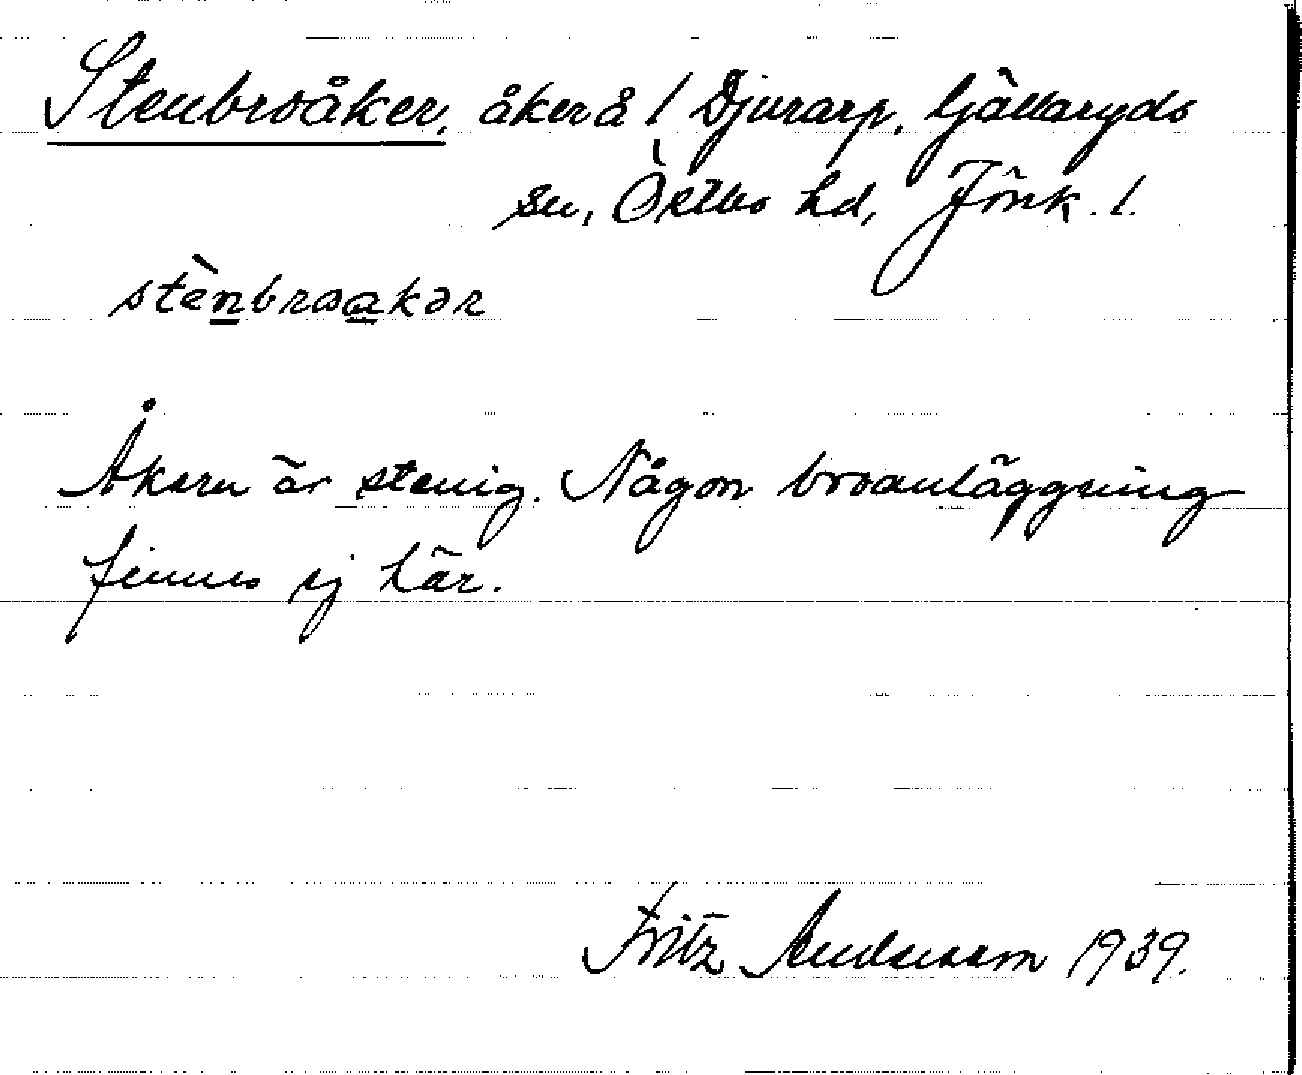 Stenbroåker, åker å 1 Djurarp, Gällaryds
sn, Östbo hd, Jönk. l.
stènbroakər
Åkern är stenig. Någon broanläggning
finnes ej här.
Fritz Andersson 1939.